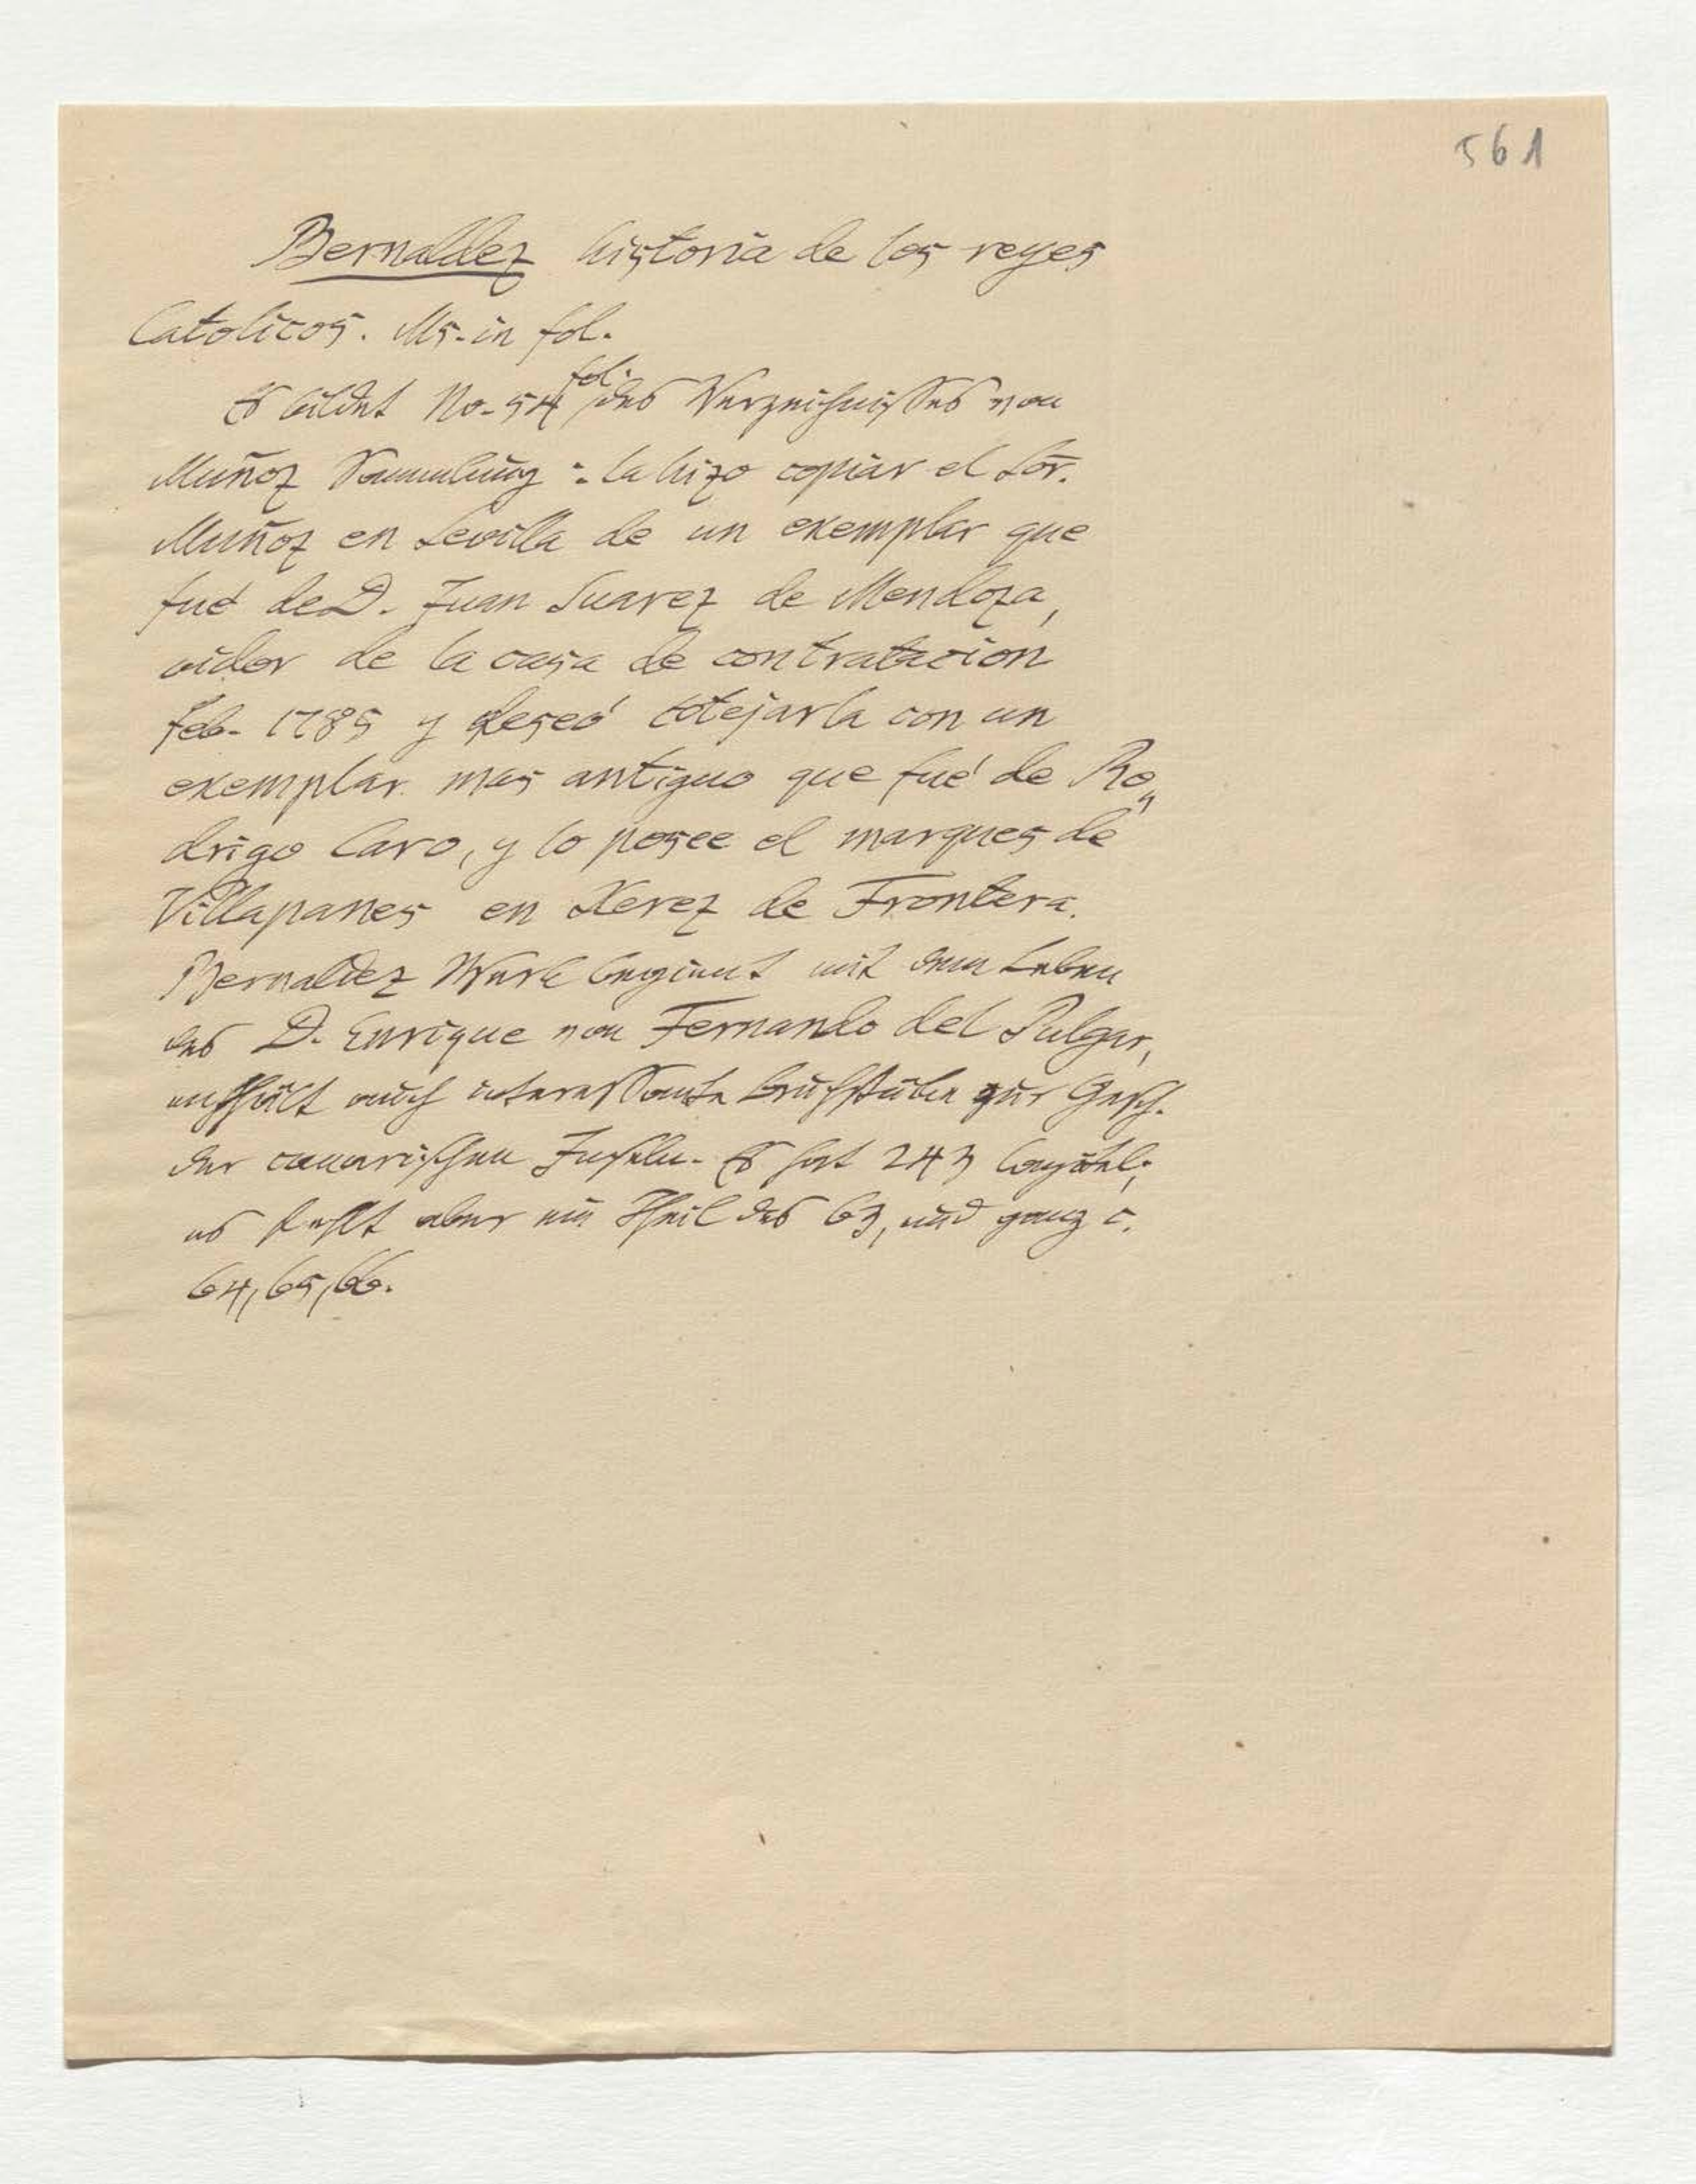 561
Bernaldez historia de los reyes
Catolicos. Ms. in fol.
Es bildet No. 54 fol. des Verzeichnisses von
Muñoz Sammlung: la hizo copiar el Sor.
Muñoz en Sevilla de un exemplar que
fué de D. Juan Suarez de Mendoza,
oidor de la casa de contratacion
Feb. 1785 y deseó cotejarla con un
exemplar mas antiguo que fué de Ro„
drigo Caro, y lo posee el marques de
Villapanes en Xerez de Frontera.
Bernaldez Werk beginnt mit dem Leben
des D. Enrique von Fernando del Pulgar,
enthält auch interessante Bruchstücke zur Gesch.
der canarischen Inseln. Es hat 243 Capitel;
es fehlt aber ein Theil des 63, und ganz c.
64, 65, 66.